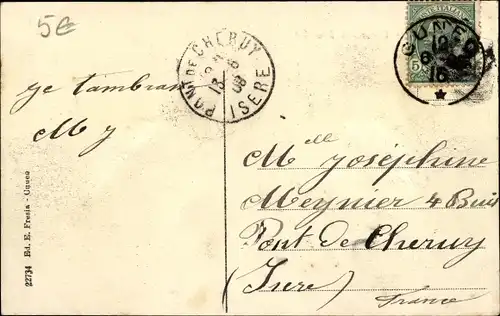 5€
PONT DE CHERUY
ISERE
CUNEO
5
je tambran
M y
Melle Joséphine
Meynier 4 Buit
Pont de Cheruy
(Isere)
France
22734 Ed. E. Fresia - Cuneo